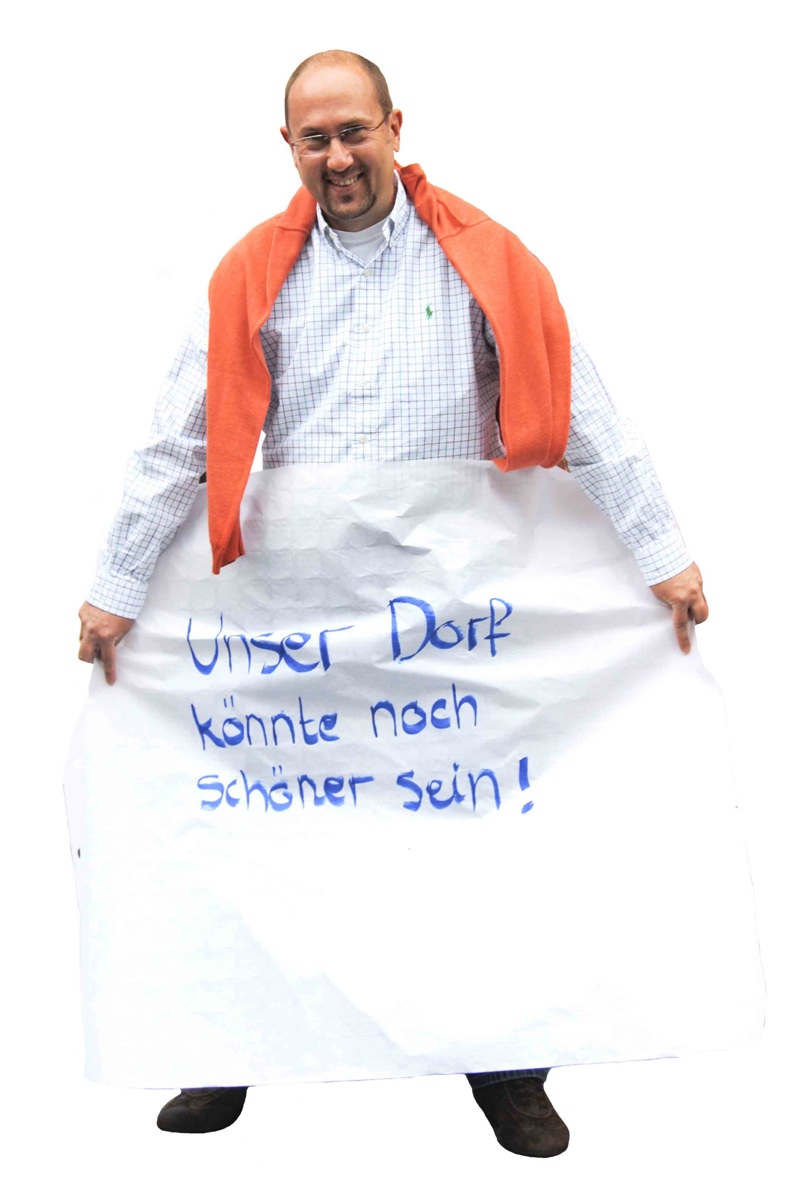 Unser Dorf
könnte noch
schöner sein!